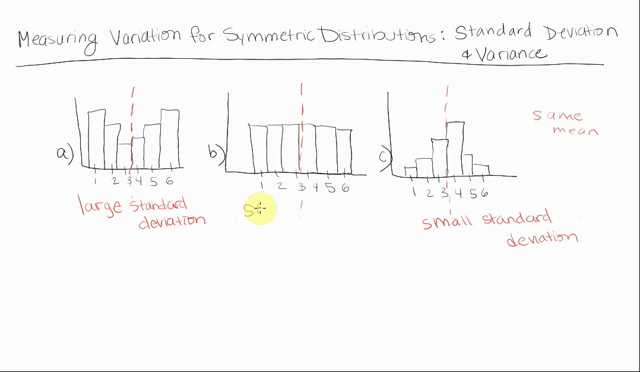 Measuring Variation for Symmetric Distributions: Standard Deviation
& Variance
same
mean
a)
1 2 3 4 5 6
b)
1 2 3 4 5 6
c)
1 2 3 4 5 6
large standard
deviation
st
small standard
deviation